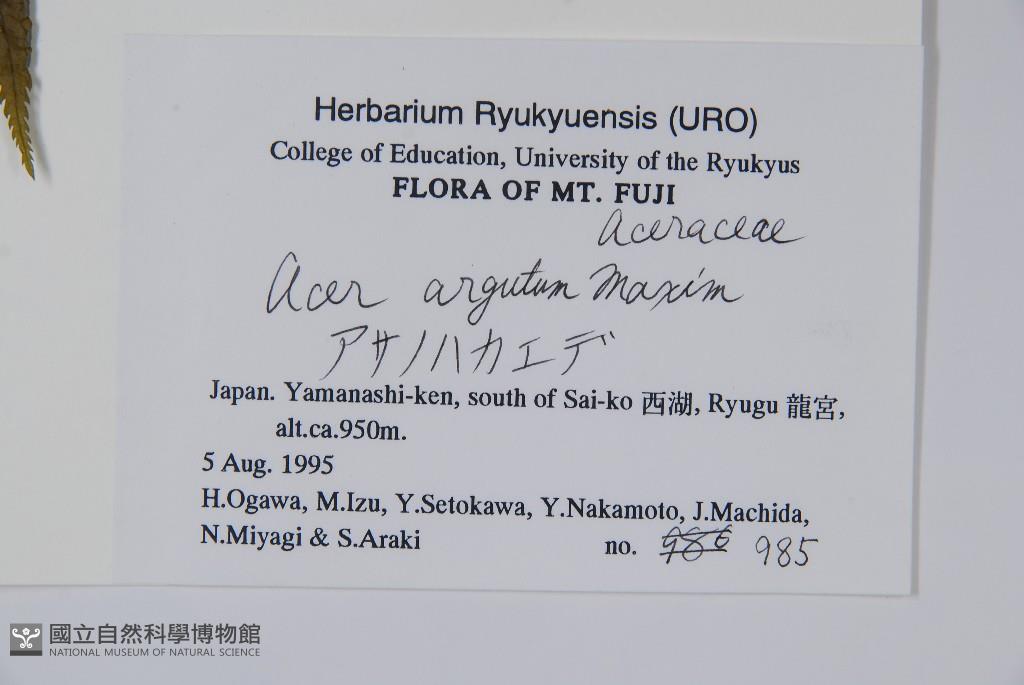 Herbarium Ryukyuensis (URO)
College of Education, University of the Ryukyus
FLORA OF MT. FUJI
Aceraceae
Acer argutum Maxim
アサノハカエデ
Japan. Yamanashi-ken, south of Sai-ko 西湖, Ryugu 龍宮,
alt.ca.950m.
5 Aug. 1995
H.Ogawa, M.Izu, Y.Setokawa, Y.Nakamoto, J.Machida,
N.Miyagi & S.Araki no. 985
國立自然科學博物館
NATIONAL MUSEUM OF NATURAL SCIENCE